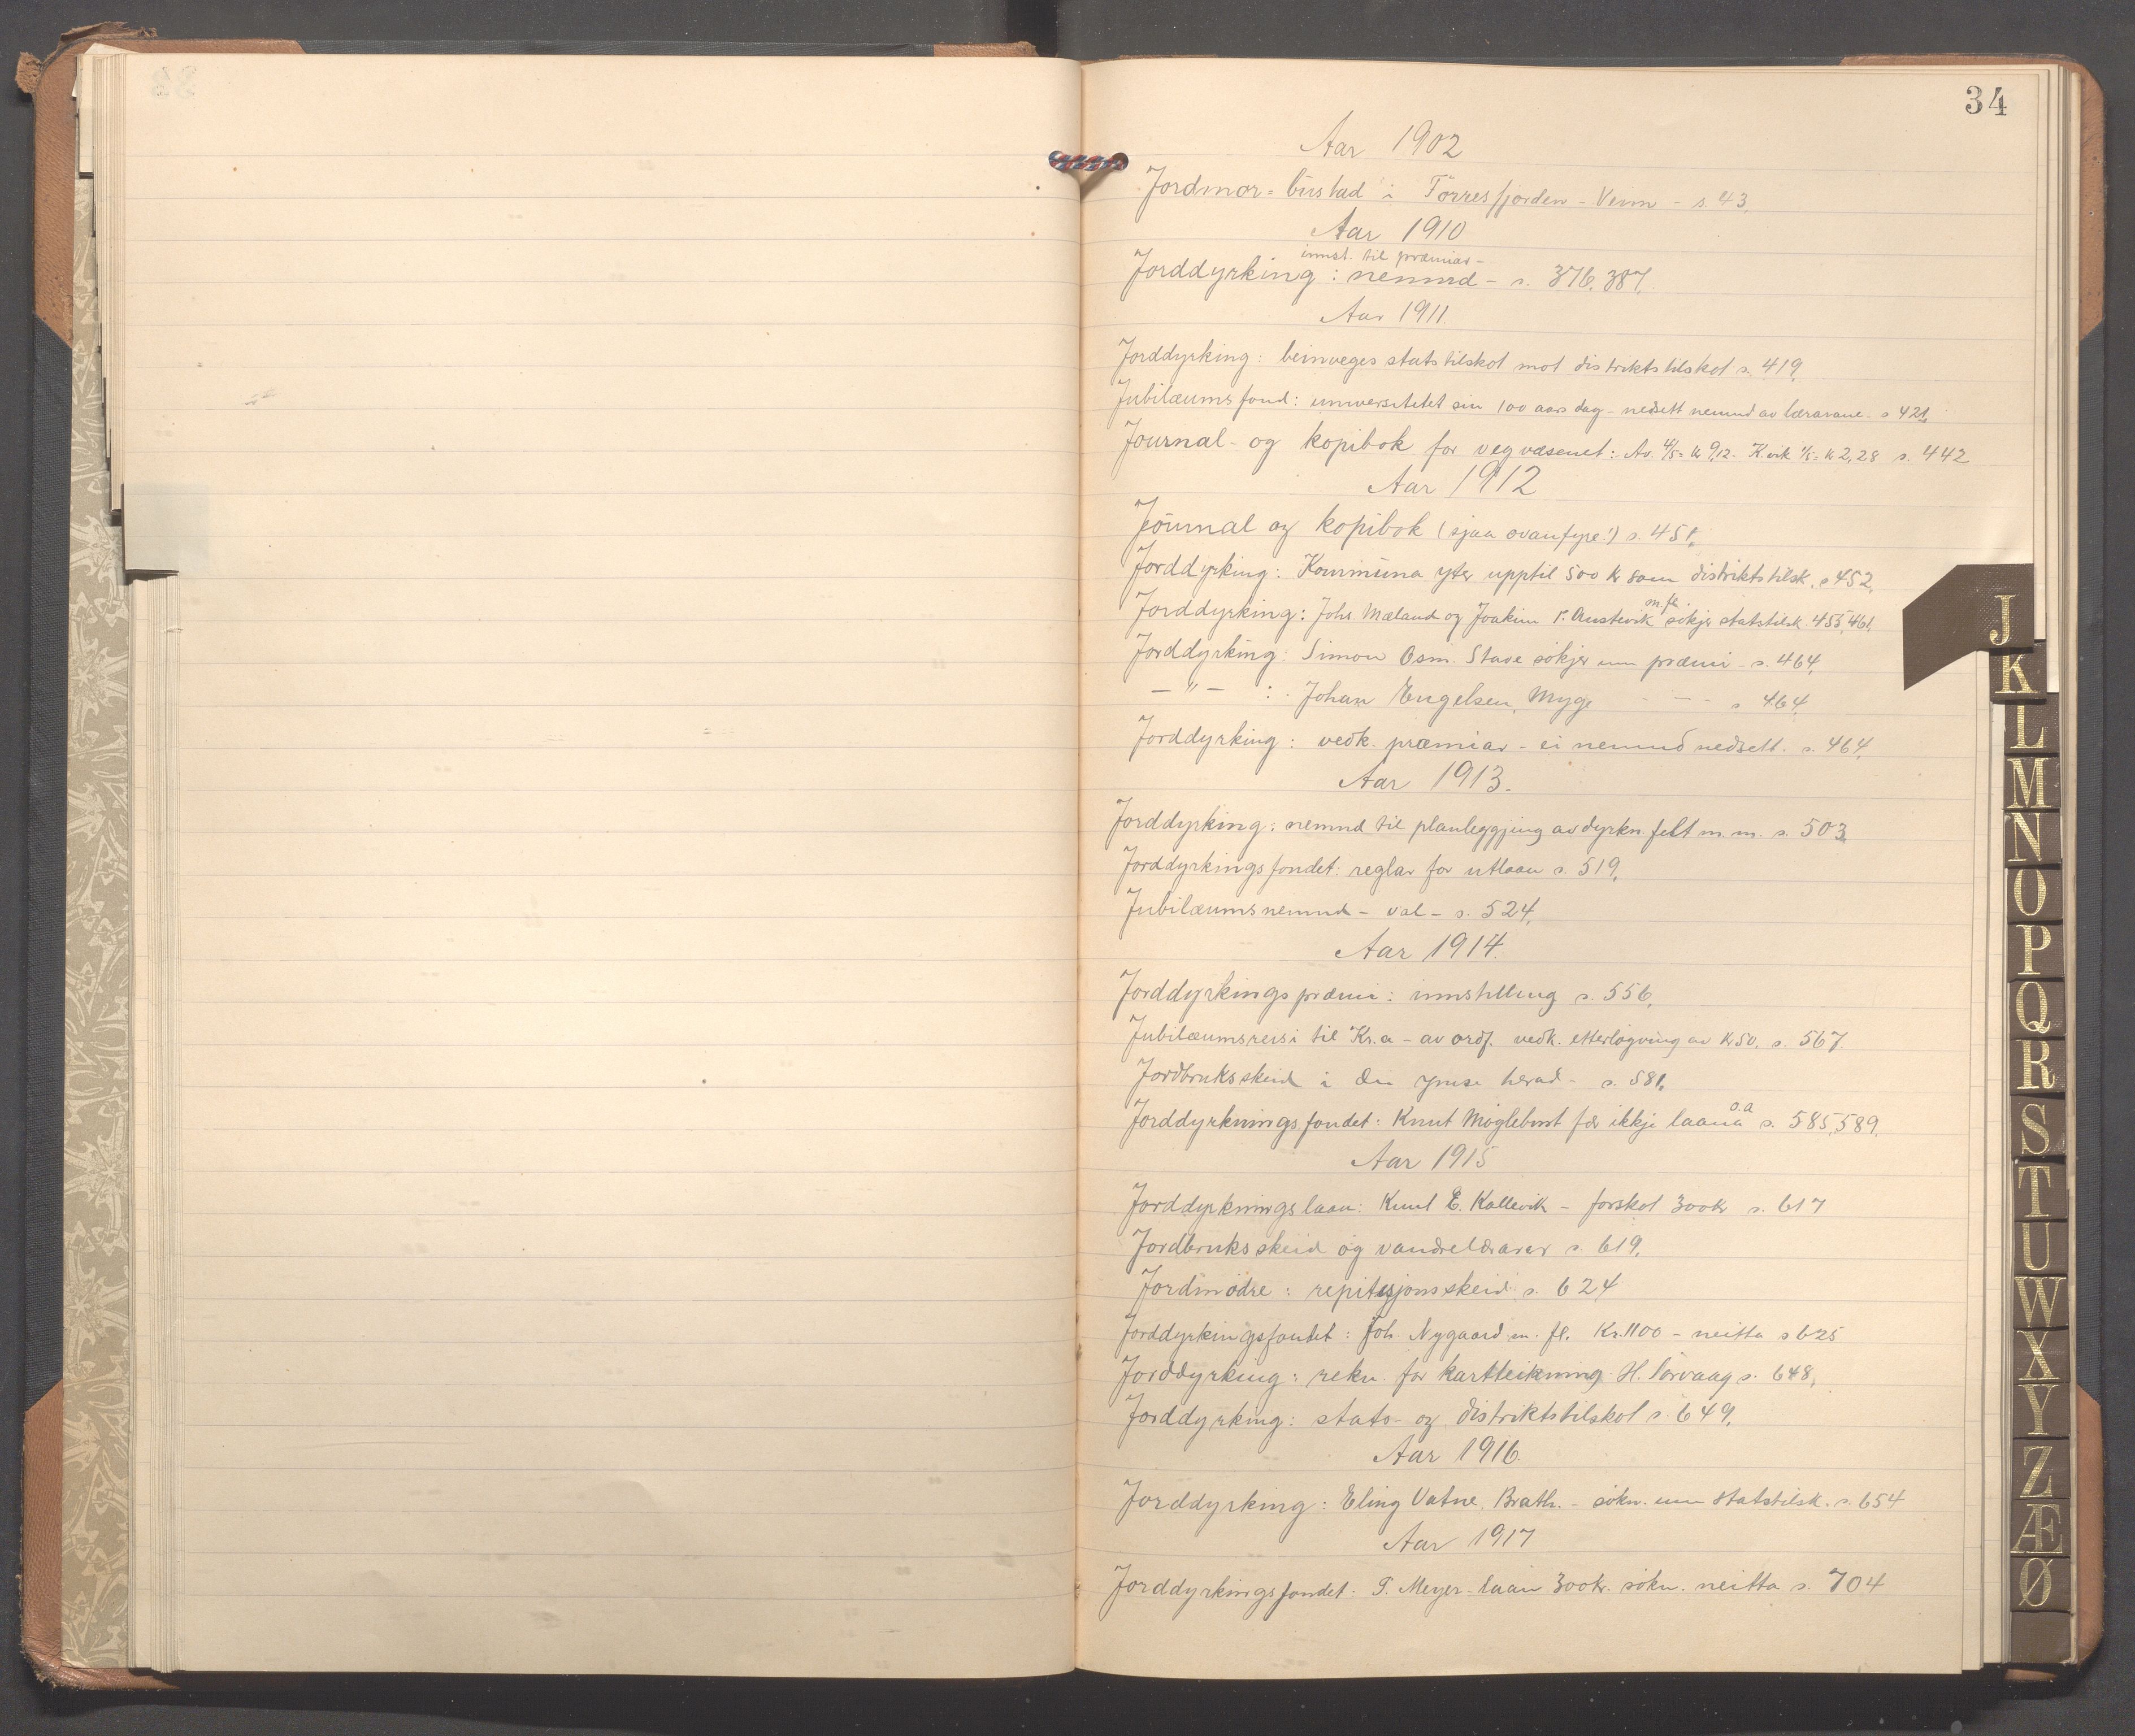 34
Aar 1902
Jordmor = bustad i Törresfjorden - Veim - s. 43.
Aar 1910
innst. til præmiar -
Jorddyrking : nemnd - s. 376, 387.
Aar 1911.
Jorddyrking : beinveges statstilskot mot distriktstilskot s. 419.
Jubilæumsfond : universitetet sin 100 aars dag - nedsett nemnd av lærarane - s 421.
Journal - og kopibok for vegvæsenet : Av. 4/5 = kr 9,12. Kvik 1/5 = kr 2,28 s. 442
Aar 1912
Journal og kopibok (sjaa ovanfyre!) s. 451.
Jorddyrking : Kommuna yter upptil 500 kr som distriktstilsk. s 452.
Jorddyrking : Johs. Mæland og Joakim P. Austevik m. fl. søkjer statstilsk. 455, 461.
Jorddyrking : Simon Osm. Stave søkjer um præmi - s. 464.
- " - : Johan Engelsen, Myge - - - s 464.
Jorddyrking : vedk. præmiar - ei nemnd nedsett. s. 464.
Aar 1913.
Jorddyrking : nemnd til planleggjing av dyrkn. felt m. m. s. 503.
Jorddyrkingsfondet : reglar for utlaan s. 519.
Jubilæumsnemnd - val - s. 524.
Aar 1914.
Jorddyrkingspræmi : innstilling s. 556.
Jubilæumsreisi til Kr.a - av ordf. vedk. etterløgving av kr 50. s. 567.
Jordbruksskeid i dei ymse herad - s. 581.
Jorddyrkningsfondet : Knut Møglebust fær ikkje laana o.a s. 585, 589.
Aar 1915
Jorddyrkningslaan : Knut E. Kallevik - forskot 300 kr s. 617
Jordbruksskeid og vandrelærarar s. 619.
Jordmødre : repitisjonsskeid s. 624
Jorddyrkingsfondet : Joh. Nygaard m. fl. Kr. 1100 - neitta s 625
Jorddyrking : rekn. for kartteikning - H. Sørvaag s. 648.
Jorddyrking : stats- og distriktstilskot s. 649.
Aar 1916.
Jorddyrking : Eling Vatne, Brath. - søkn. um statstilsk. s. 654
Aar 1917
Jorddyrkingsfondet : T. Meyer - laan 300 kr. søkn. neitta s. 704
J
K
L
M
N
O
P
Q
R
S
T
U
W
X
Y
Z
Æ
Ø